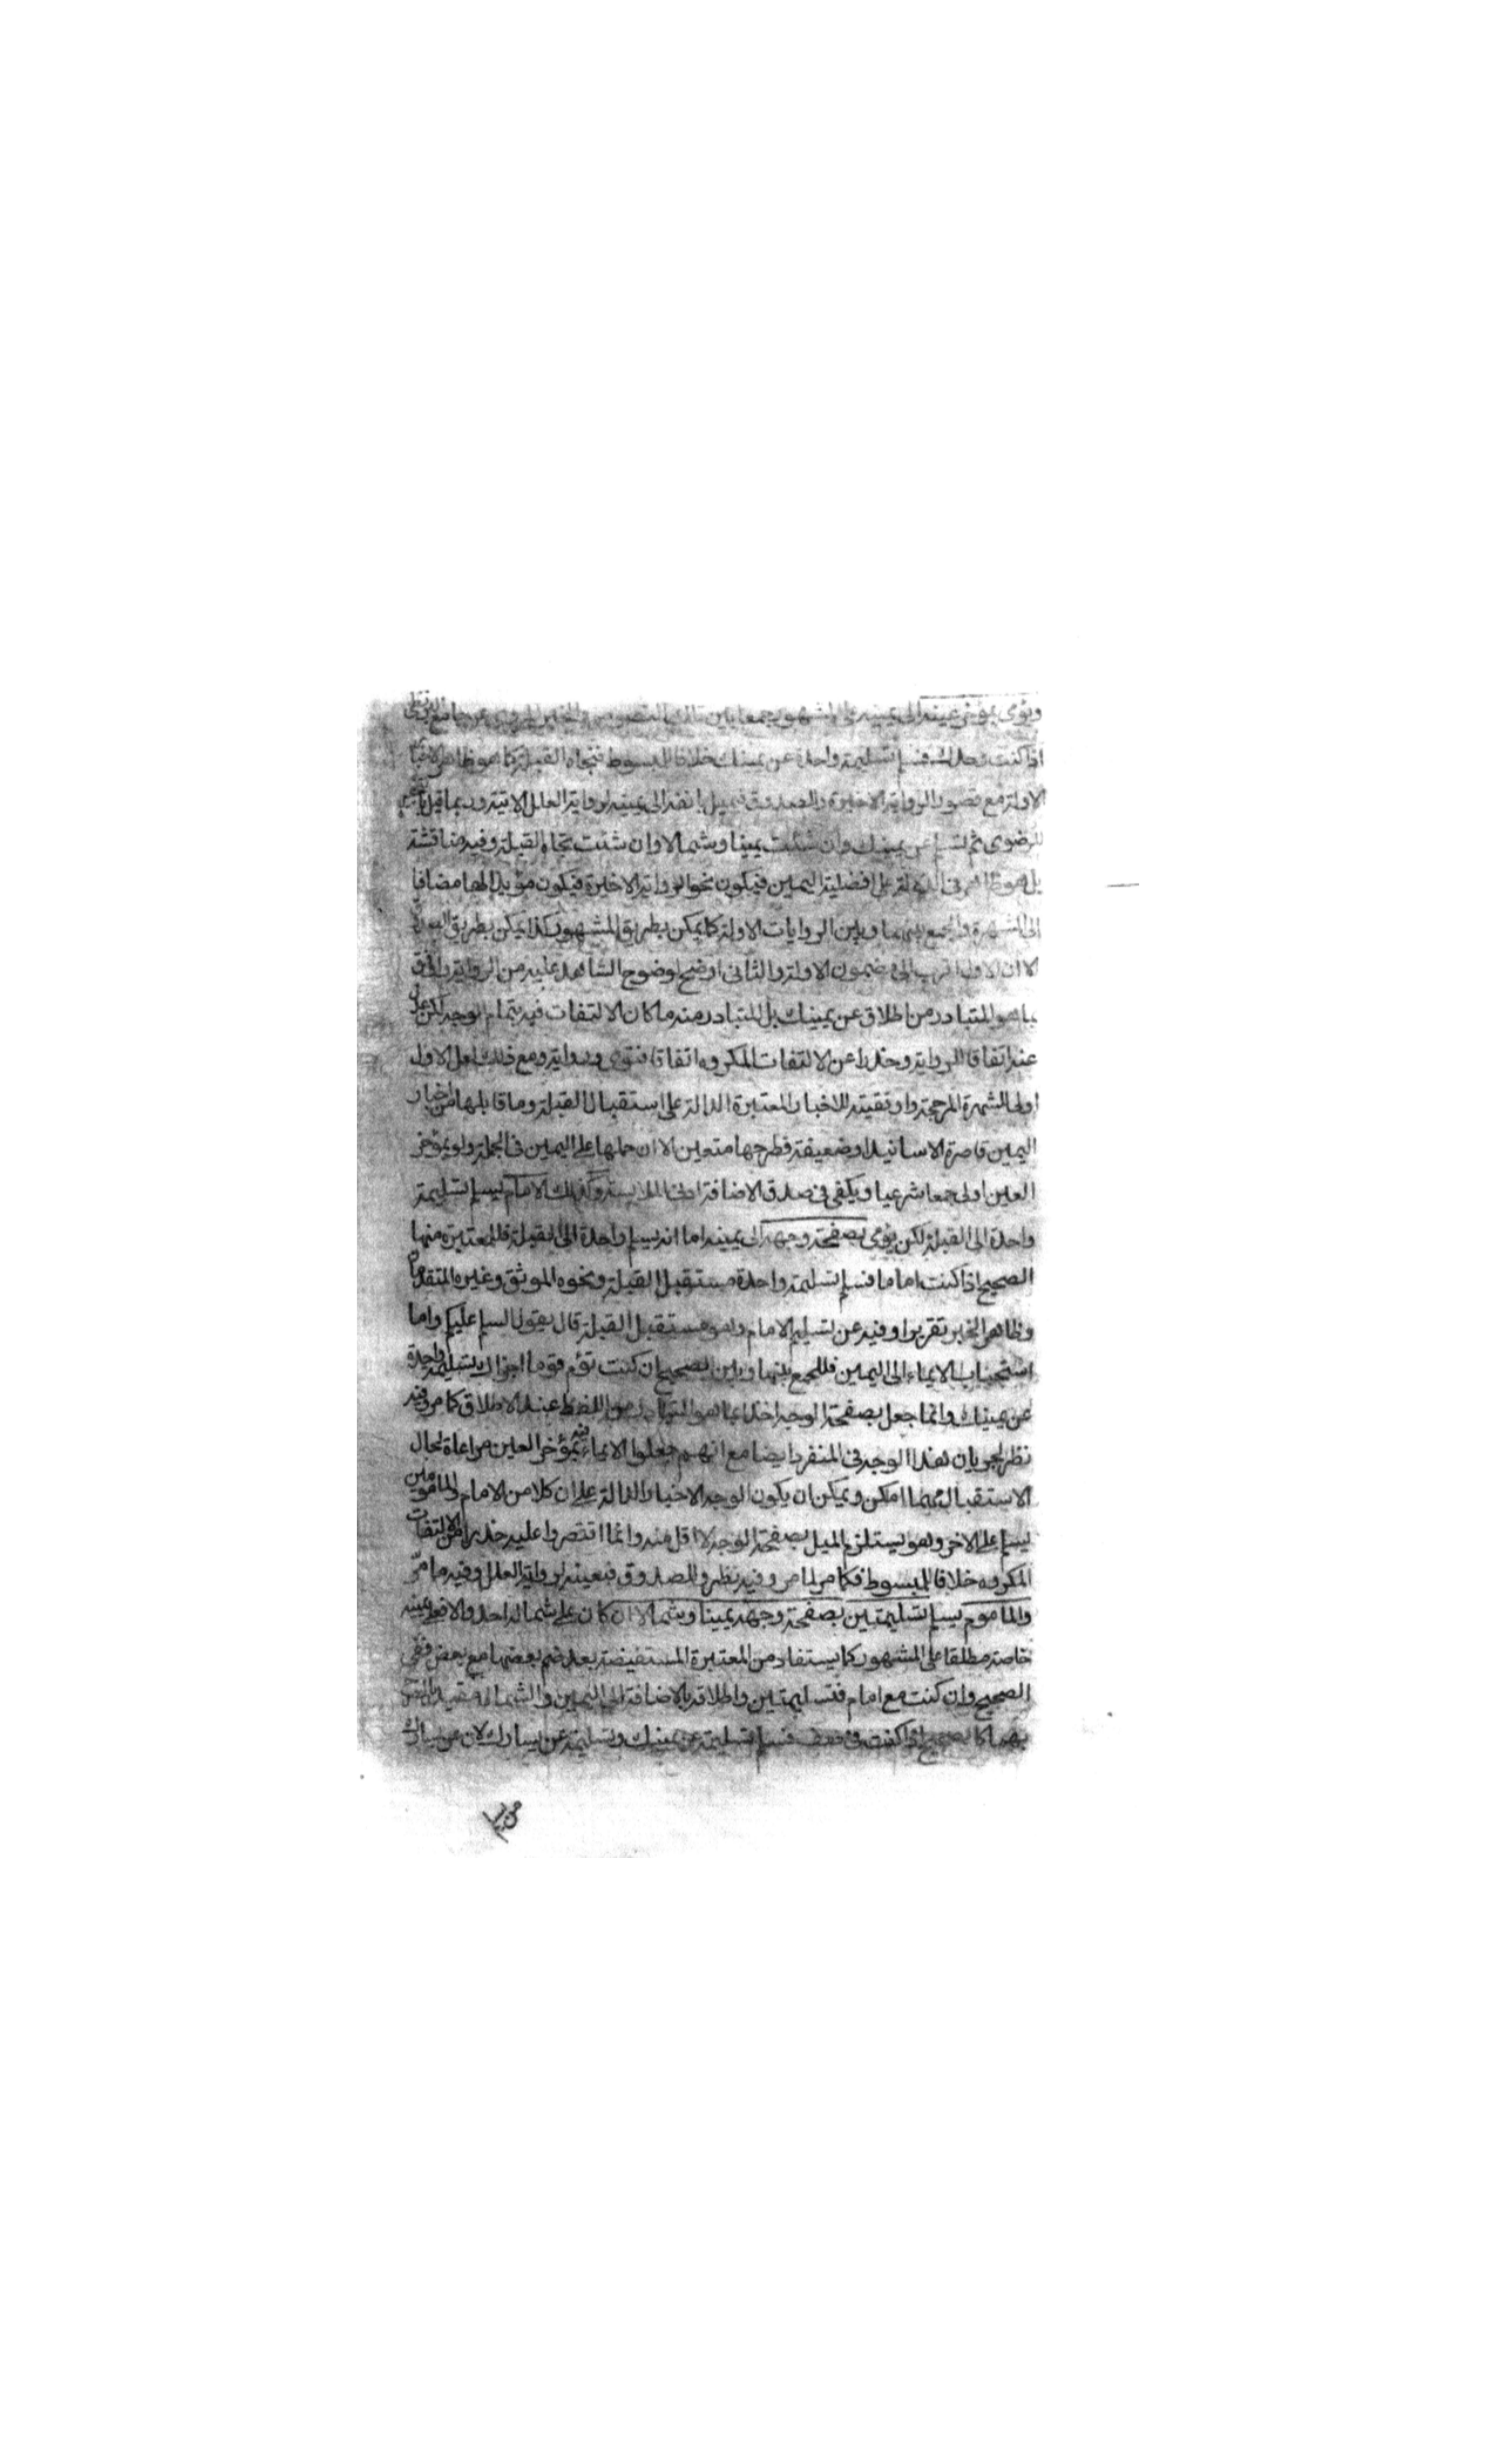 ويؤمى بمؤخر عينه الى يمينه على المشهور جمعا بين تلك النصوص والخبر المروى عن جامع البزنطى
اذا كنت وحدك فسلم تسليمة واحدة عن يمينك خلافا للمبسوط فتجاه القبلة كما هو ظاهر الاخبار
الاولة مع قصور الرواية الاخيرة والصدوق فيميل بانفه الى يمينه لرواية العلل الاتية وربما قيل
للرضوى ثم تسلم عن يمينك وان شئت يمينا وشمالا وان شئت تجاه القبلة وفيه مناقشة
بل هو ظاهر فى الدلالة على افضلية اليمين فيكون نحو الرواية الاخيرة فيكون مؤيدا لها مضافا
الى الشهرة والجمع بينهما وبين الروايات الاولة كما يمكن بطريق المشهور كذا يمكن بطريق الصدوق
الا ان الاول اقرب الى مضمون الاولة والثانى اوضح لوضوح الشاهد عليه من الرواية وافق
بما هو المتبادر من اطلاق عن يمينك بل المتبادر منه ما كان الالتفات فيه بتمام الوجه لكن عدل
عنه اتفاقا للرواية وحذرا عن الالتفات المكروه اتفاقا فتوى ورواية ومع ذلك لعل الاول
اولى للشهرة المرجحة واوفقيته للاخبار المعتبرة الدالة على استقبال القبلة وما قابلها من اخبار
اليمين قاصرة الاسانيد او ضعيفة فطرحها متعين الا ان حملها على اليمين فى الجملة ولو بمؤخر
العين اولى جمعا شرعيا ويكفى فى صدق الاضافة ادنى الملابسة وكذلك الامام يسلم تسليمة
واحدة الى القبلة لكن يؤمى بصفحة وجهه الى يمينه اما انه يسلم واحدة الى القبلة فللمعتبرة منها
الصحيح اذا كنت اماما فسلم تسليمة واحدة مستقبل القبلة ونحوه الموثق وغيره المتقدمان
وظاهر الخبر تقريرا وفيه عن تسليم الامام وهو مستقبل القبلة قال يقول السلم عليكم واما
استحباب الايماء الى اليمين فللجمع بينها وبين الصحيح ان كنت تؤم قوما اجزاك تسليمة واحدة
عن يمينك وانما جعل بصفحة الوجه اخذا بما هو المتبادر من اللفظ عند الاطلاق كما مر وفيه
نظر لجريان هذا الوجه فى المنفرد ايضا مع انهم جعلوا الايماء فيه بمؤخر العين مراعاة لحال
الاستقبال مهما امكن ويمكن ان يكون الوجه الاخبار الدالة على ان كلا من الامام والمامومين
يسلم على الاخر وهو يستلزم الميل بصفحة الوجه لا اقل منه وانما اقتصروا عليه حذرا من الالتفات
المكروه خلافا للمبسوط فكما مر لما مر وفيه نظر وللصدوق فبعينه لرواية العلل وفيه ما مر
والماموم يسلم تسليمتين بصفحة وجهه يمينا وشمالا ان كان على شماله احد والا فعلى يمينه
خاصة مطلقا على المشهور كما يستفاد من المعتبرة المستفيضة بعد ضم بعضها مع بعض ففى
الصحيح وان كنت مع امام فتسليمتين واطلاقه بالاضافة الى اليمين والشمال مقيد بالتصريح
بهما كالصحيح اذا كنت فى صف فسلم تسليمة عن يمينك وتسليمة عن يسارك لان عن يسارك